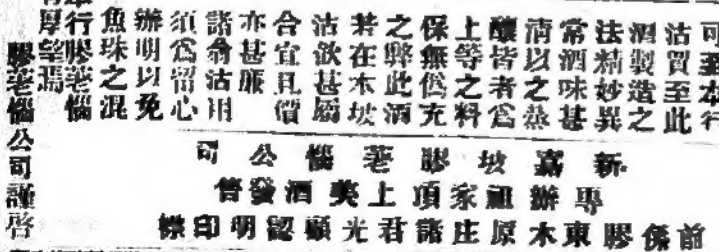 可至本行
沽買至此
酒製造之
法精妙異
常酒味甚
清以之蒸
釀皆者爲
上等之料
保無僞充
之弊此酒
若在本坡
沽飲甚屬
合宜且價
亦甚廉
諸翁沽用
須爲留心
辦明以免
魚珠之混
行膠荖惱
厚望焉
膠荖惱公司謹啓
新嘉坡膠荖惱公司
專辦祖家頂上美酒發售
前係膠東木原庄諸君光顧認明印